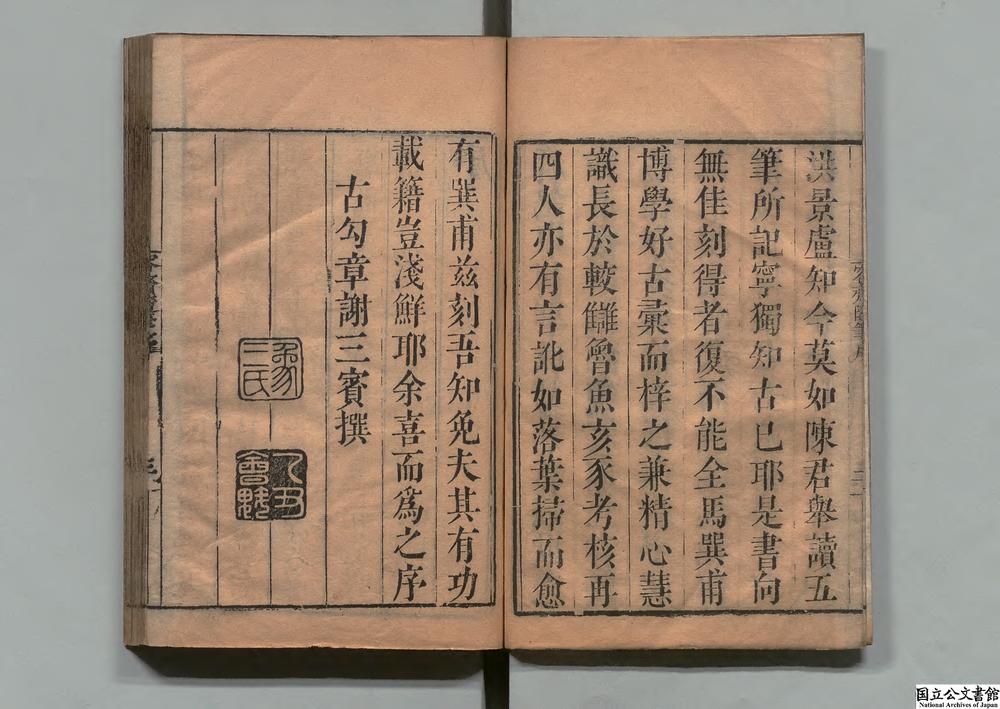 洪景盧知今莫如陳君舉讀五
筆所記寧獨知古已耶是書向
無佳刻得者復不能全馬巽甫
博學好古彙而梓之兼精心慧
識長於較讎魯魚亥豕考核再
四人亦有言訛如落葉掃而愈
有巽甫茲刻吾知免夫其有功
載籍豈淺鮮耶余喜而爲之序
古勾章謝三賓撰
国立公文書館
National Archives of Japan